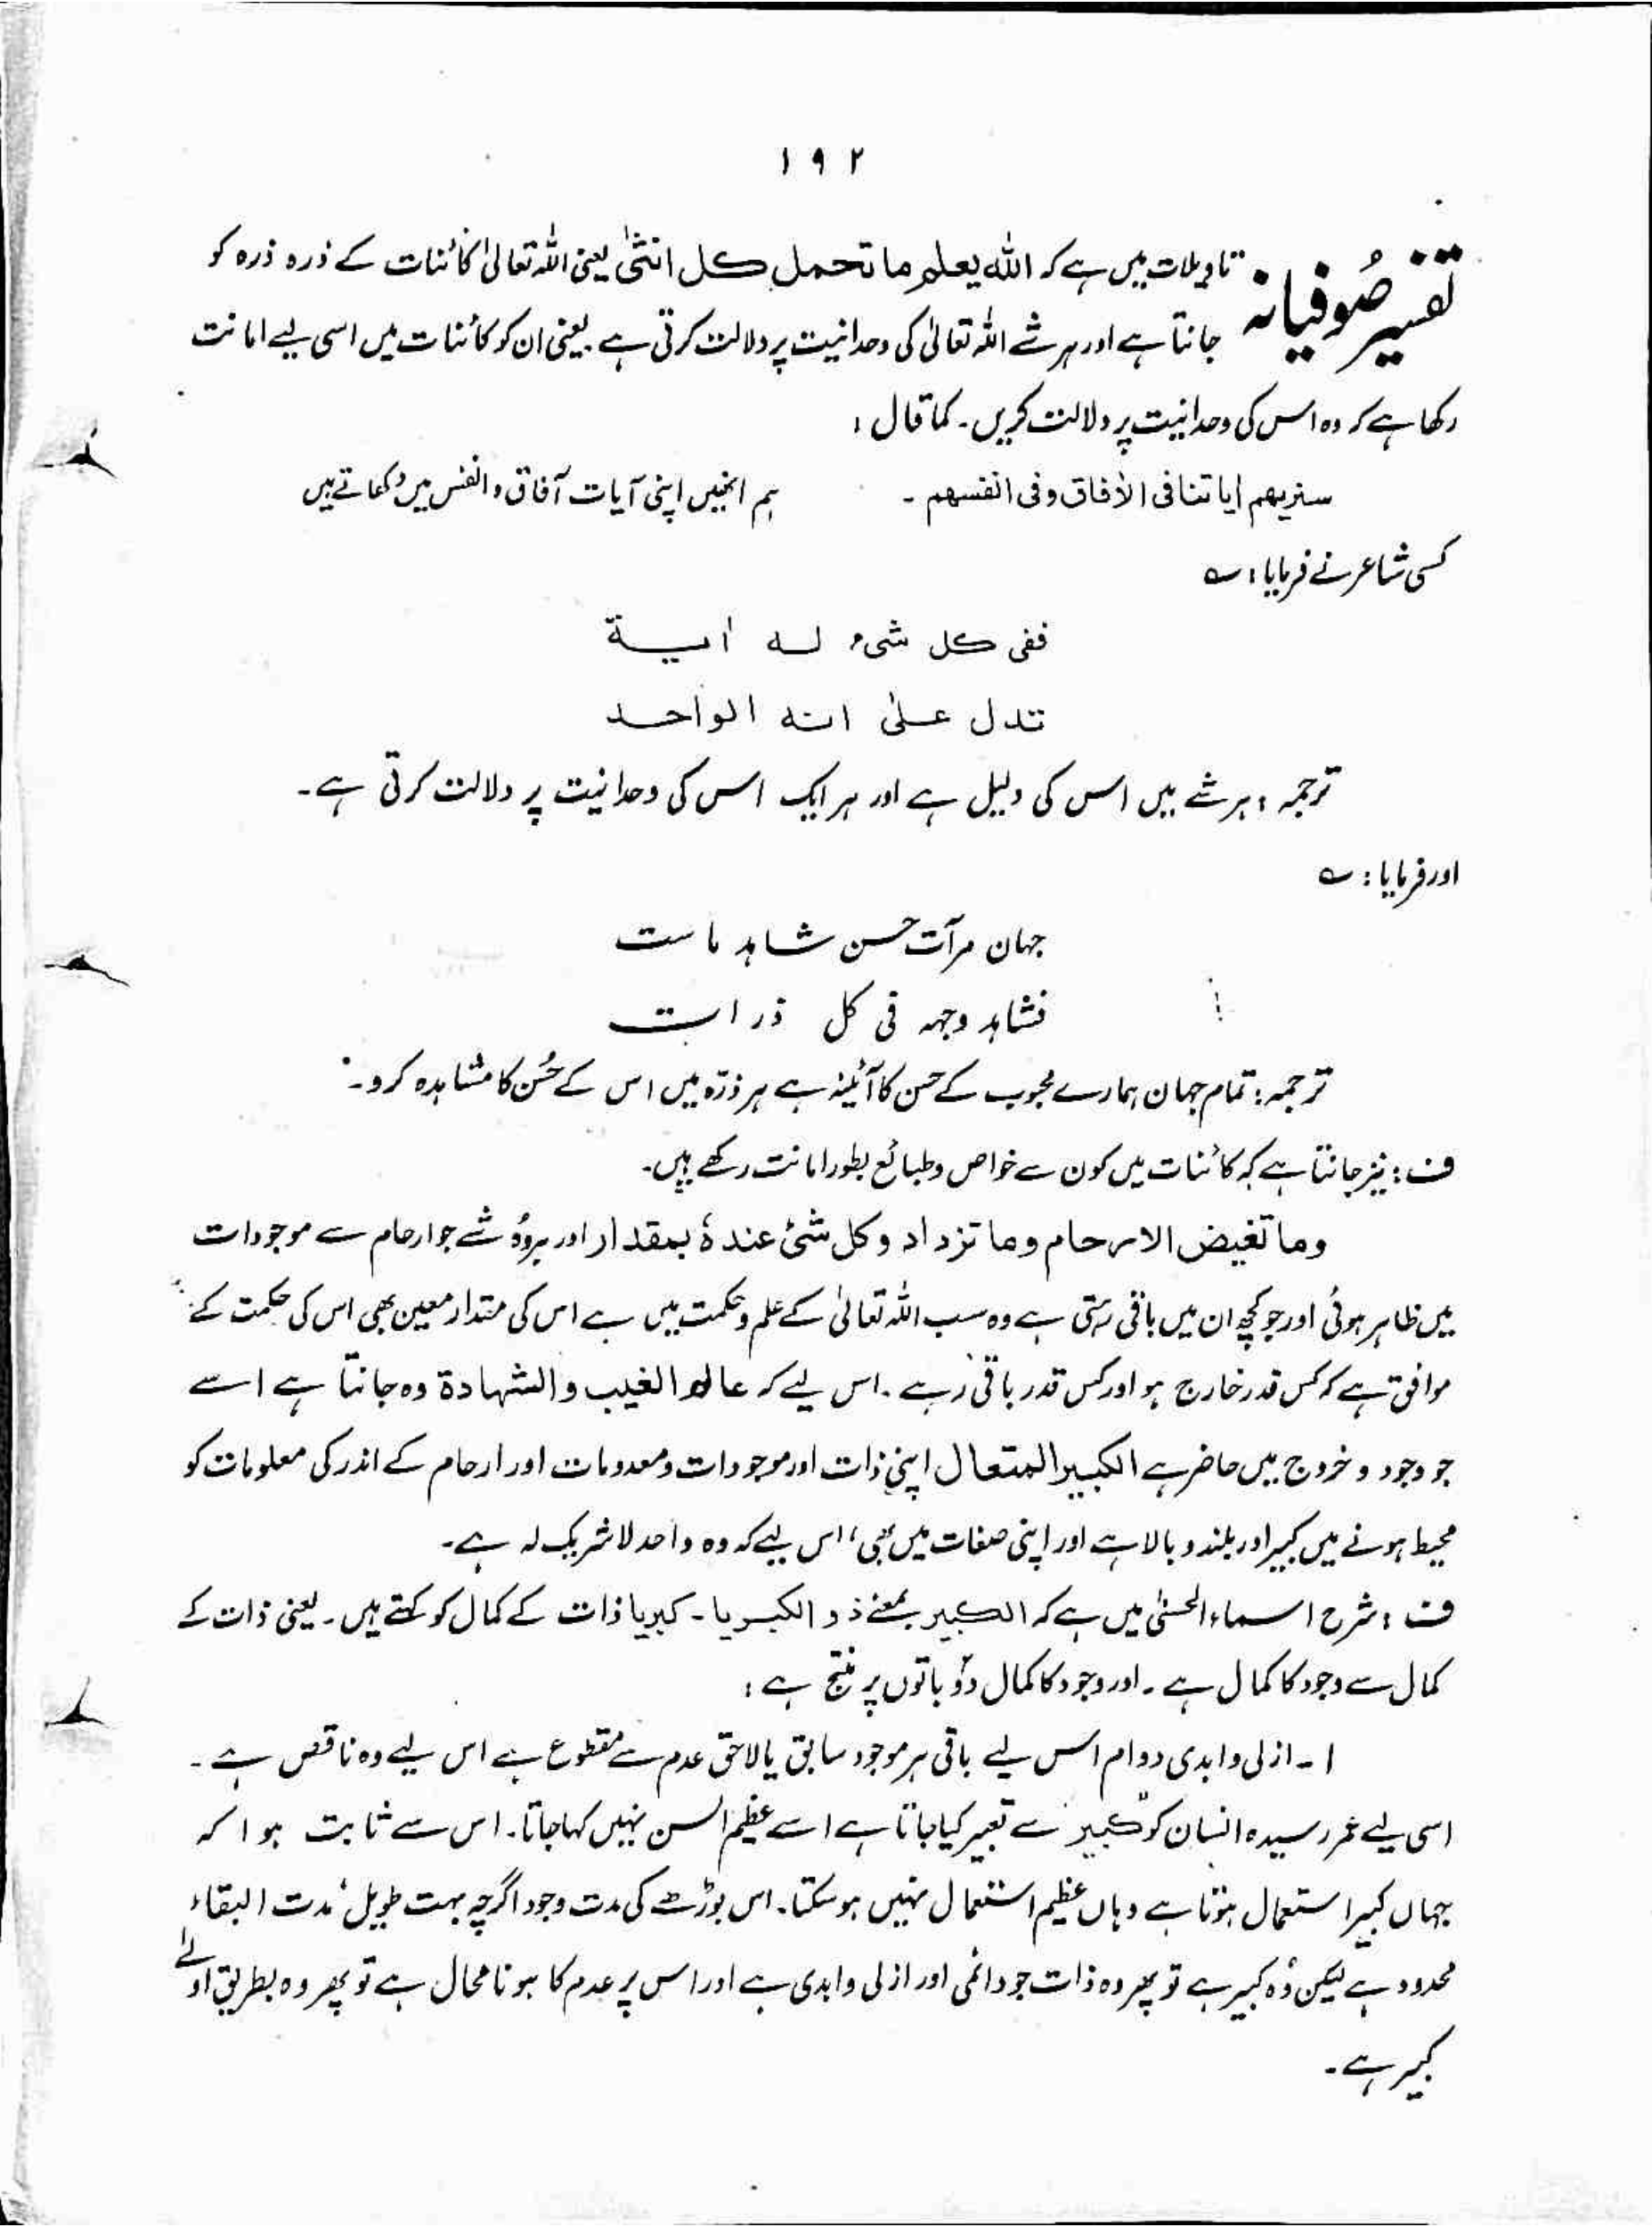 ۱۹۲
تفسیر صوفیانہ
تاویلات میں ہے کہ اللہ یعلم ما تحمل کل انثیٰ یعنی اللہ تعالیٰ کائنات کے ذرہ ذرہ کو
جانتا ہے اور ہر شے اللہ تعالیٰ کی وحدانیت پر دلالت کرتی ہے یعنی ان کو کائنات میں اسی لیے امانت
رکھا ہے کہ وہ اس کی وحدانیت پر دلالت کریں۔ کما قال :
سنریھم اٰیاتنا فی الاٰفاق وفی انفسھم ۔ ہم انھیں اپنی آیات آفاق و انفس میں دکھاتے ہیں
کسی شاعر نے فرمایا : ؎
ففی کل شیء لہ اٰیۃ
تدل علیٰ انہ الواحد
ترجمہ : ہر شے میں اس کی دلیل ہے اور ہر ایک اس کی وحدانیت پر دلالت کرتی ہے۔
اور فرمایا : ؎
جہان مرآت حسن شاہد ماست
فشاہد وجہہ فی کل ذرات
ترجمہ : تمام جہان ہمارے محبوب کے حسن کا آئینہ ہے ہر ذرّہ میں اس کے حُسن کا مشاہدہ کرو۔
ف : نیز جانتا ہے کہ کائنات میں کون سے خواص و طبائع بطور امانت رکھے ہیں۔
وما تغیض الارحام وما تزداد وکل شیٔ عندہٗ بمقدار اور ہر وُہ شے جو ارحام سے موجودات
میں ظاہر ہوئی اور جو کچھ ان میں باقی رہتی ہے وہ سب اللہ تعالیٰ کے علم و حکمت میں ہے اس کی مقدار معین بھی اس کی حکمت کے
موافق ہے کہ کس قدر خارج ہو اور کس قدر باقی رہے ۔ اس لیے کہ عالم الغیب والشہادۃ وہ جانتا ہے اسے
جو وجود و خروج میں حاضر ہے الکبیر المتعال اپنی ذات اور موجودات و معدومات اور ارحام کے اندر کی معلومات کو
محیط ہونے میں کبیر اور بلند و بالا ہے اور اپنی صفات میں بھی، اس لیے کہ وہ واحد لا شریک لہ ہے۔
ف : شرح اسماء الحسنیٰ میں ہے کہ الکبیر بمعنے ذو الکبریا ۔ کبریا ذات کے کمال کو کہتے ہیں۔ یعنی ذات کے
کمال سے وجود کا کمال ہے ۔ اور وجود کا کمال دوٗ باتوں پر منتج ہے :
۱ ۔ ازلی و ابدی دوام اس لیے باقی ہر موجود سابق یا لاحق عدم سے مقطوع ہے اس لیے وہ ناقص ہے ۔
اسی لیے عمر رسیدہ انسان کو کبیر سے تعبیر کیا جاتا ہے اسے عظیم السن نہیں کہا جاتا۔ اس سے ثابت ہوا کہ
جہاں کبیر استعمال ہوتا ہے وہاں عظیم استعمال نہیں ہو سکتا۔ اس بوڑھے کی مدت وجود اگرچہ بہت طویل ٗ مدت البقاء
محدود ہے لیکن وُہ کبیر ہے تو پھر وہ ذات جو دائمی اور ازلی و ابدی ہے اور اس پر عدم کا ہونا محال ہے تو پھر وہ بطریق اولےٰ
کبیر ہے ۔